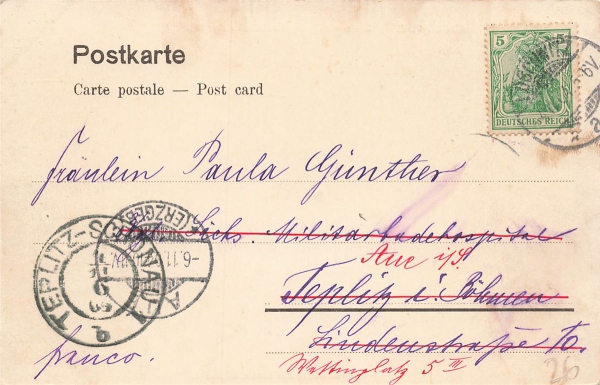 Postkarte
Carte postale — Post card
5 5
DEUTSCHES REICH
Fräulein Paula Günther
Sächs. Militärbadehospital
Aue i/S.
Teplitz i. Böhmen
Lindenstraße
Wettinplatz 5 III
franco.
TEPLITZ-
ERZGEB
26